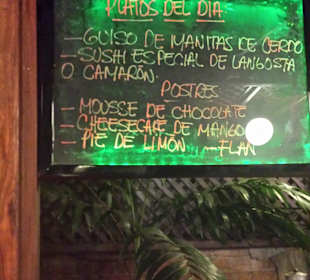 PLATOS DEL DIA
— GUISO DE MANITAS DE CERDO
— SUSHI ESPECIAL DE LANGOSTA
O CAMARÓN.
POSTRES
— MOUSSE DE CHOCOLATE
— CHEESECAKE DE MANGO
— PIE DE LIMÓN... — FLAN